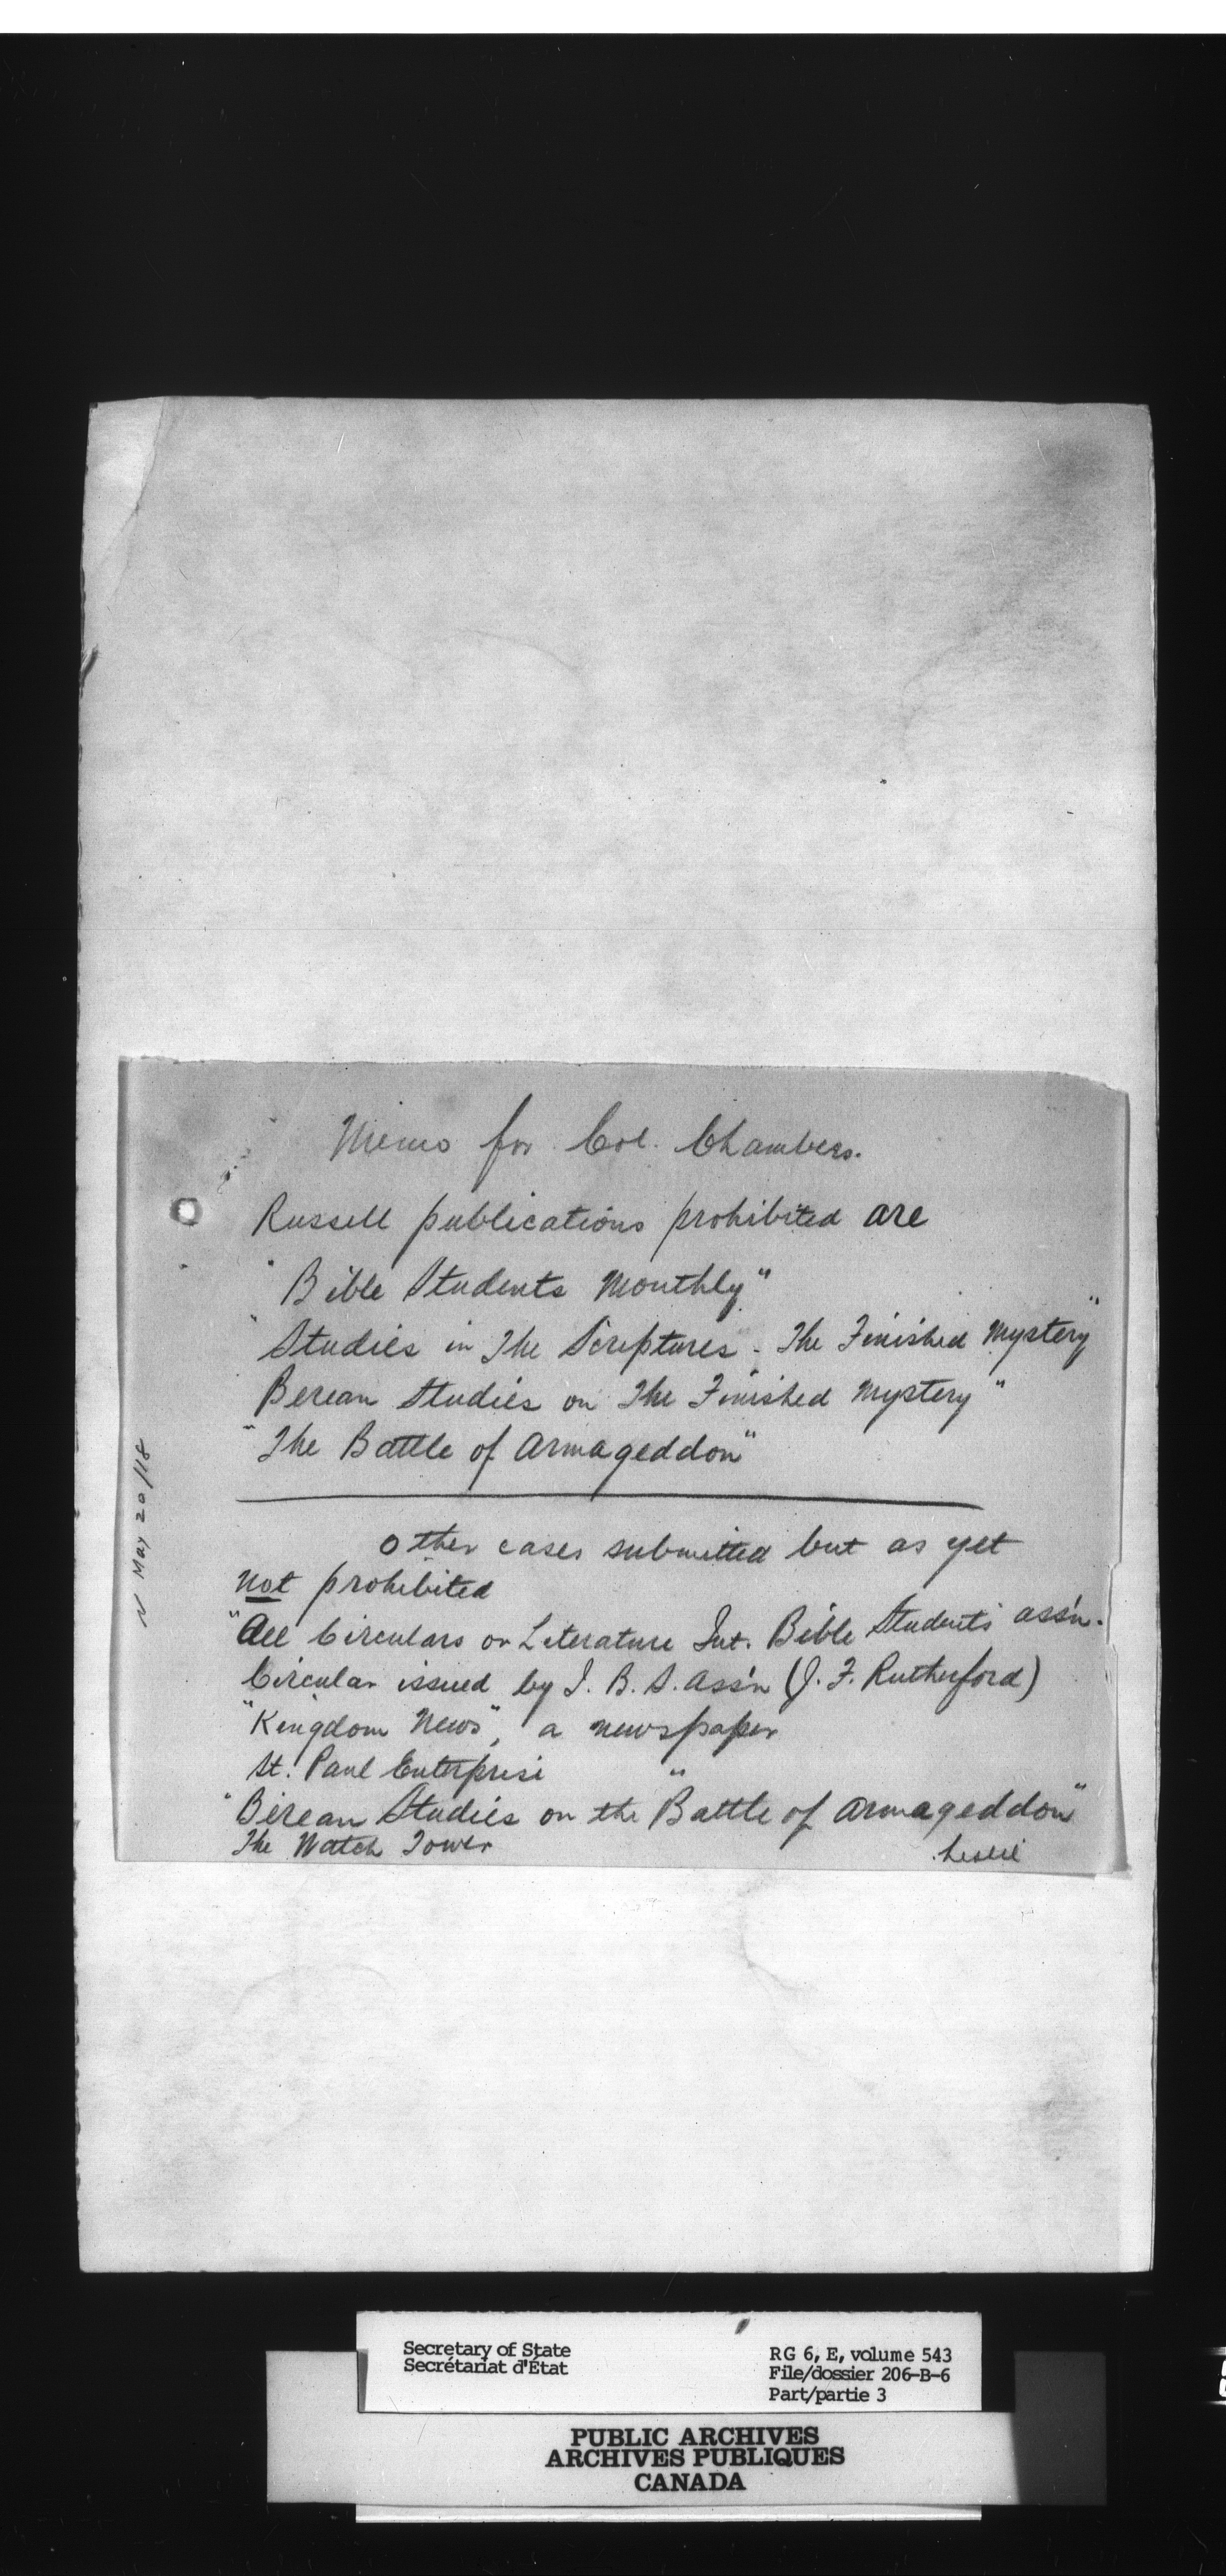 Memo for Col. Chambers.
Russell publications prohibited are
"Bible Students Monthly"
"Studies in The Scriptures - The Finished Mystery"
"Berean Studies on The Finished Mystery"
"The Battle of Armageddon"
Other cases submitted but as yet
not prohibited
"All Circulars or Literature Int. Bible Students' Ass'n.
Circular issued by I. B. S. Ass'n (J. F. Rutherford)
"Kingdom News", a newspaper
St. Paul Enterprise "
"Berean Studies on the Battle of Armageddon"
The Watch Tower
Leslie
May 20/18
Secretary of State
Secrétariat d'État
RG 6, E, volume 543
File/dossier 206-B-6
Part/partie 3
PUBLIC ARCHIVES
ARCHIVES PUBLIQUES
CANADA